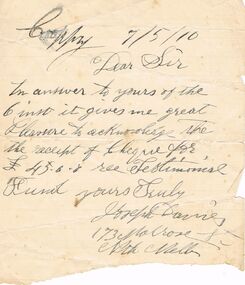 Copy 7/5/10
Dear Sir
In answer to yours of the
6 inst it gives me great
Pleasure to acknowledge the
the receipt of Cheque for
£ 45.0.0 ree Testimonial
Fund yours Truly
Joseph Davies
173 Melrose St
Nth Melb